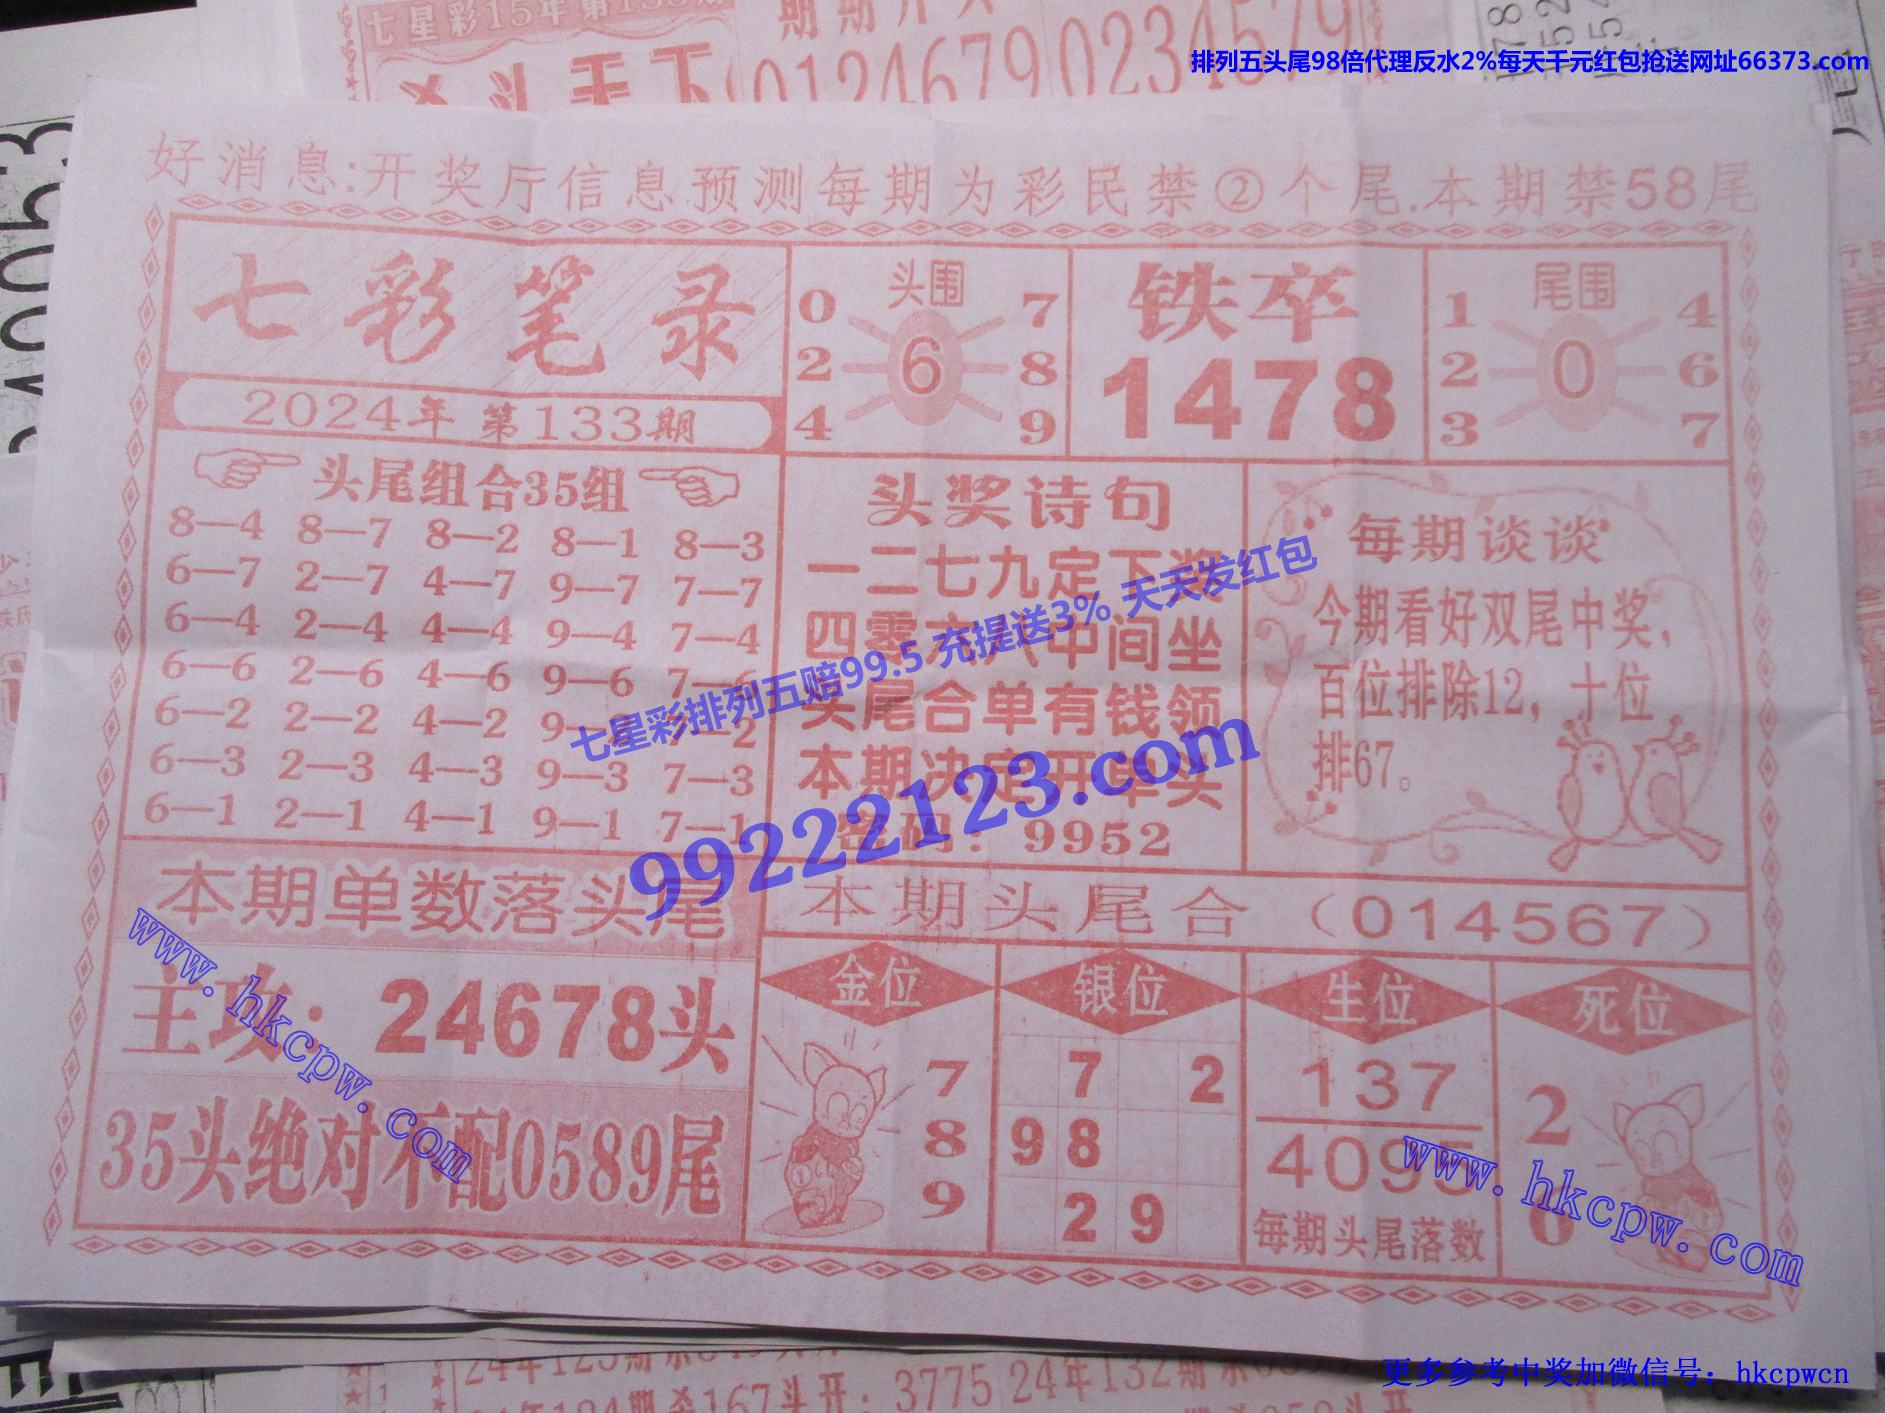 七星彩15年第133期
0124679 0234579
排列五头尾98倍代理反水2%每天千元红包抢送网址66373.com
好消息:开奖厅信息预测每期为彩民禁②个尾.本期禁58尾
七彩笔录
2024年 第133期
头围
0 7
2 6 8
4 9
铁卒
1478
尾围
1 4
2 0 6
3 7
头尾组合35组
8—4 8—7 8—2 8—1 8—3
6—7 2—7 4—7 9—7 7—7
6—4 2—4 4—4 9—4 7—4
6—6 2—6 4—6 9—6 7—6
6—2 2—2 4—2 9—2 7—2
6—3 2—3 4—3 9—3 7—3
6—1 2—1 4—1 9—1 7—1
头奖诗句
一二七九定下奖
四零六八中间坐
头尾合单有钱领
本期决定开单头
密码：9952
每期谈谈
今期看好双尾中奖，
百位排除12，十位
排67。
七星彩排列五赔99.5 充提送3% 天天发红包
99222123.com
本期单数落头尾
主攻：24678头
35头绝对不配0589尾
本期头尾合（014567）
金位
7
8
9
银位
7 2
98
29
生位
137
4095
每期头尾落数
死位
2
6
www.hkcpw.com
www.hkcpw.com
3775 24年132期
更多参考中奖加微信号：hkcpwcn